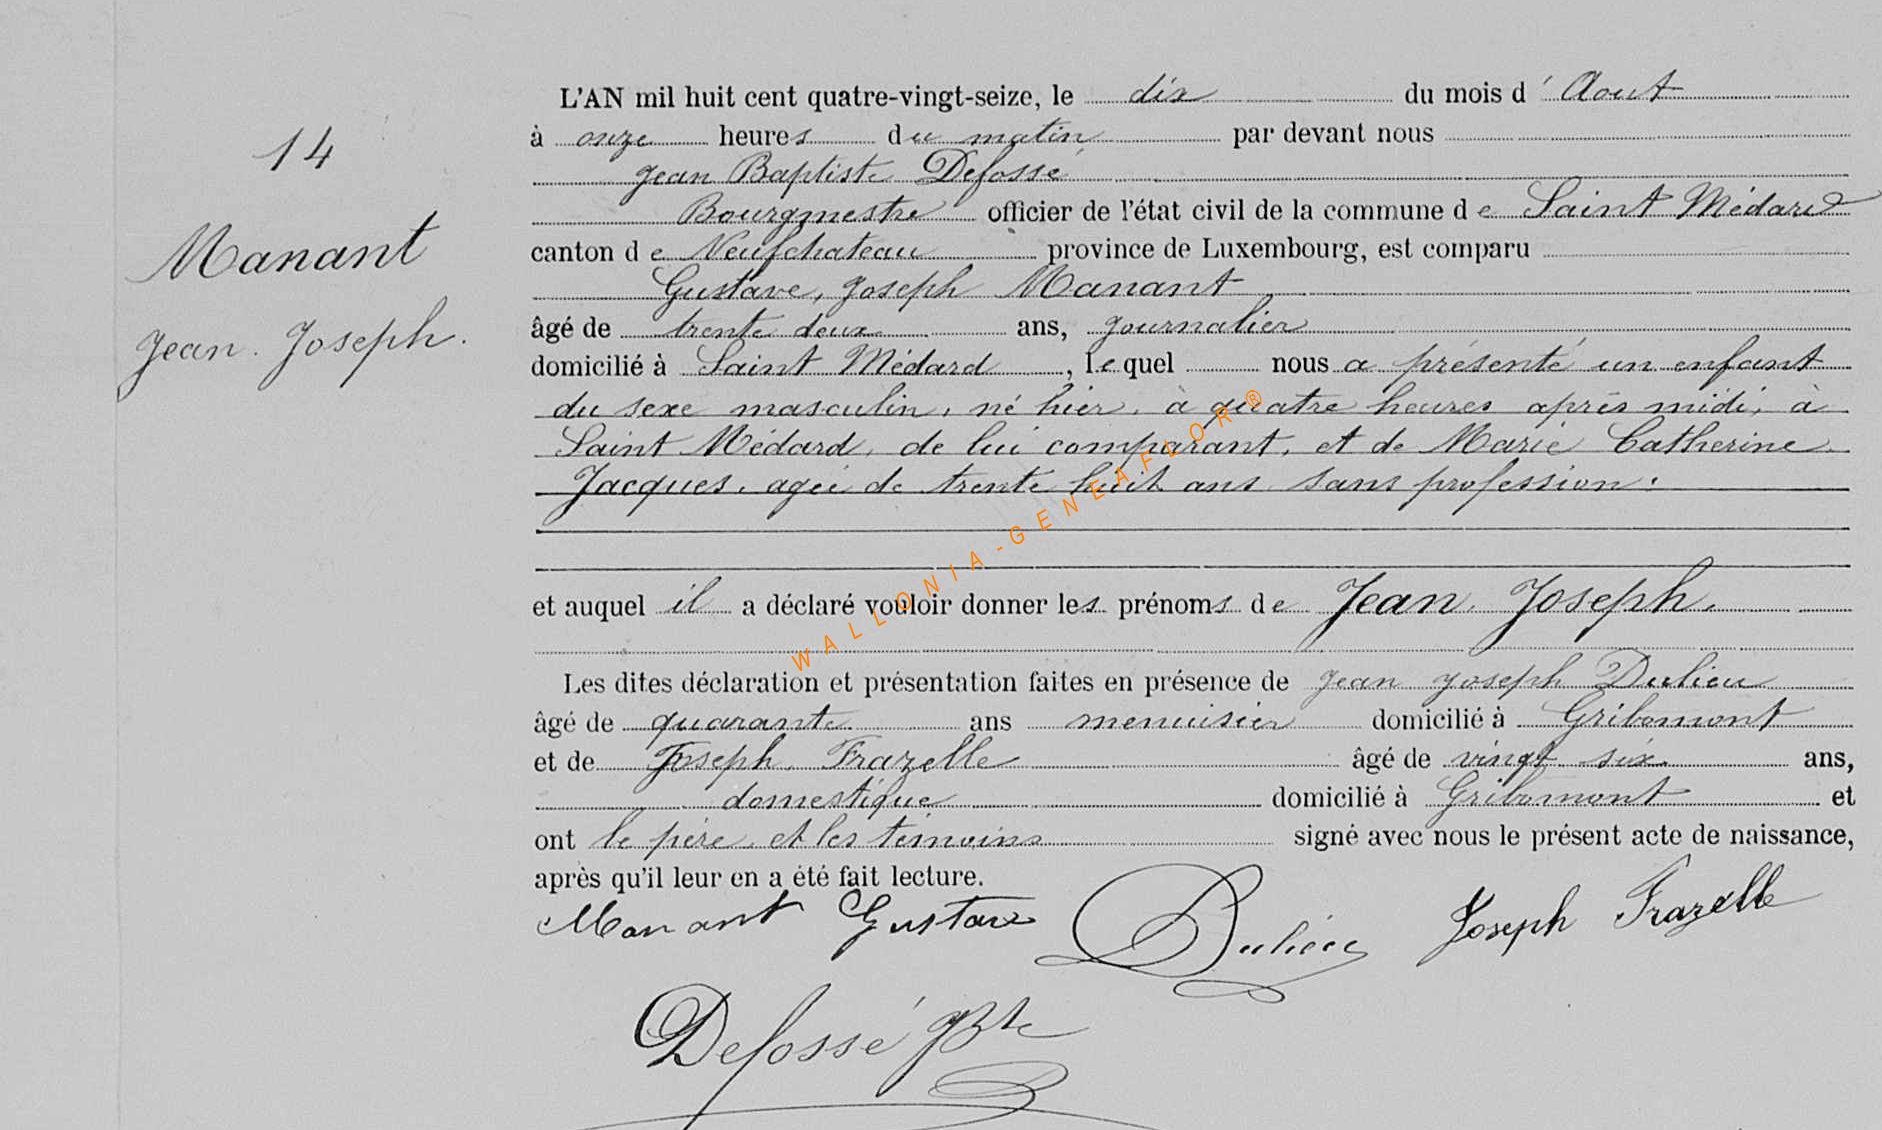 14
Manant
Jean. Joseph.
L'AN mil huit cent quatre-vingt-seize, le dix du mois d'Aout
à onze heures du matin par devant nous
Jean Baptiste Defossé
Bourgmestre officier de l'état civil de la commune de Saint Médard
canton de Neufchateau province de Luxembourg, est comparu
Gustave, Joseph Manant
âgé de trente deux ans, journalier
domicilié à Saint Médard, lequel nous a présenté un enfant
du sexe masculin, né hier, à quatre heures après midi, à
Saint Médard, de lui comparant, et de Marie Catherine
Jacques, agée de trente huit ans sans profession.
et auquel il a déclaré vouloir donner les prénoms de Jean. Joseph.
Les dites déclaration et présentation faites en présence de Jean Joseph Dulieu
âgé de quarante ans menuisier domicilié à Gribomont
et de Joseph Frazelle âgé de vingt six ans,
domestique domicilié à Gribomont et
ont le père et les témoins signé avec nous le présent acte de naissance,
après qu'il leur en a été fait lecture.
Manant Gustave Dulieu Joseph Frazelle
Defossé JBte
WALLONIA-GENEAFLOR®